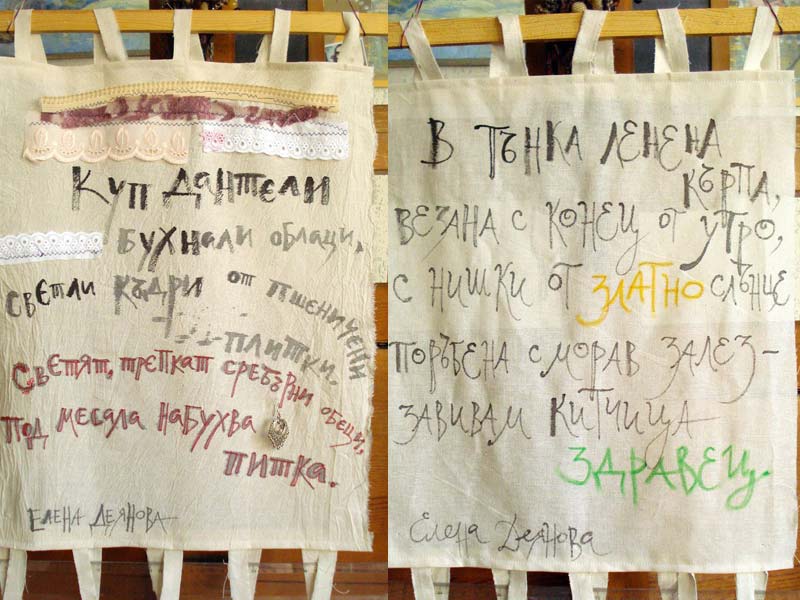 Куп дантели
бухнали облаци,
светли къдри от пшеничени
плитки.
Светят, трепкат сребърни обеци,
под месала набухва
питка.
Елена Деянова
В тънка ленена
кърпа,
везана с конец от утро,
с нишки от златно слънце
поръбена с морав залез –
завивам китчица
здравец.
Елена Деянова